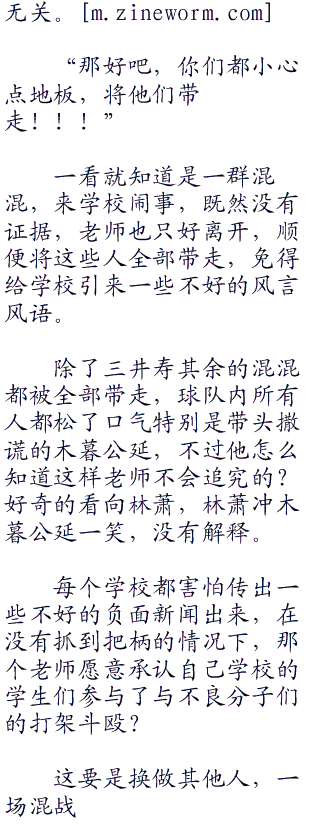 无关。[m.zineworm.com]
“那好吧，你们都小心
点地板，将他们带
走！！！”
一看就知道是一群混
混，来学校闹事，既然没有
证据，老师也只好离开，顺
便将这些人全部带走，免得
给学校引来一些不好的风言
风语。
除了三井寿其余的混混
都被全部带走，球队内所有
人都松了口气特别是带头撒
谎的木暮公延，不过他怎么
知道这样老师不会追究的？
好奇的看向林萧，林萧冲木
暮公延一笑，没有解释。
每个学校都害怕传出一
些不好的负面新闻出来，在
没有抓到把柄的情况下，那
个老师愿意承认自己学校的
学生们参与了与不良分子们
的打架斗殴？
这要是换做其他人，一
场混战